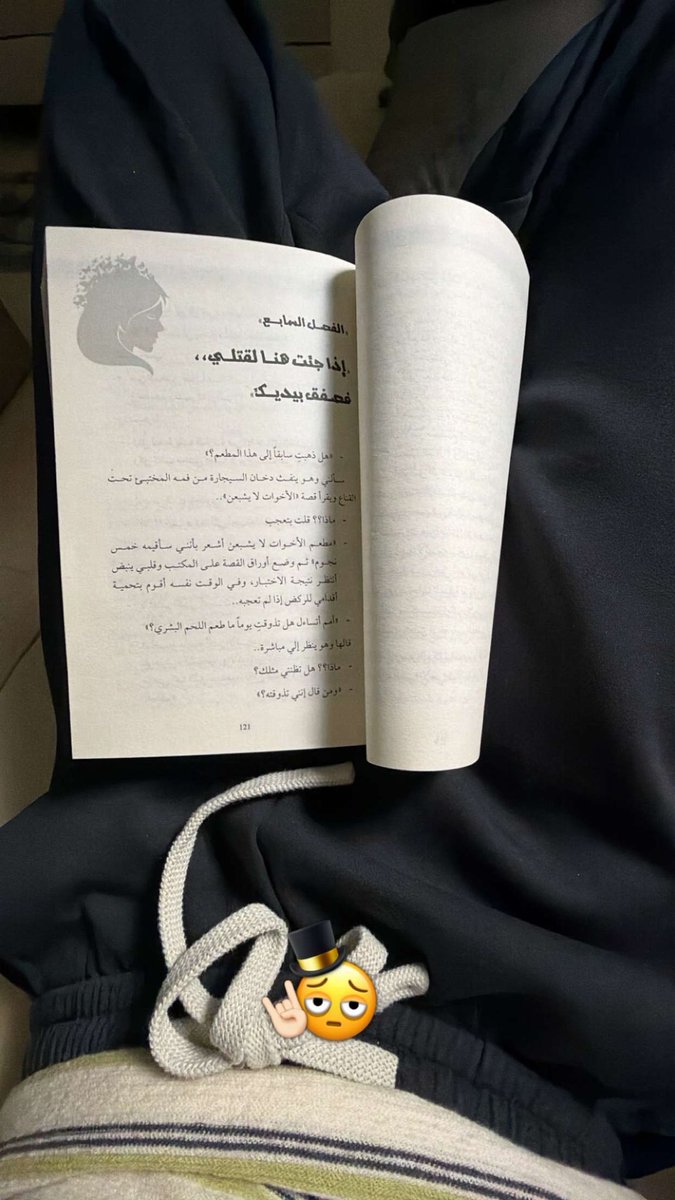 «الفصل السابع»
«إذا جئت هنا لقتلي،،
فصفق بيديك»
- «هل ذهبتِ سابقاً إلى هذا المطعم؟»
سألني وهو ينفث دخان السيجارة من فمه المختبئ تحت
القناع ويقرأ قصة «الأخوات لا يشبعن»..
- ماذا؟؟ قلت بتعجب
- «مطعم الأخوات لا يشبعن أشعر بأنني سأقيمه خمس
نجوم» ثم وضع أوراق القصة على المكتب وقلبي ينبض
أنتظر نتيجة الاختبار، وفي الوقت نفسه أقوم بتحمية
أقدامي للركض إذا لم تعجبه..
- «أمم أتساءل هل تذوقتِ يوماً ما طعم اللحم البشري؟»
قالها وهو ينظر إلي مباشرة..
- ماذا؟؟ هل تظنني مثلك؟
- «ومن قال إنني تذوقته؟»
121